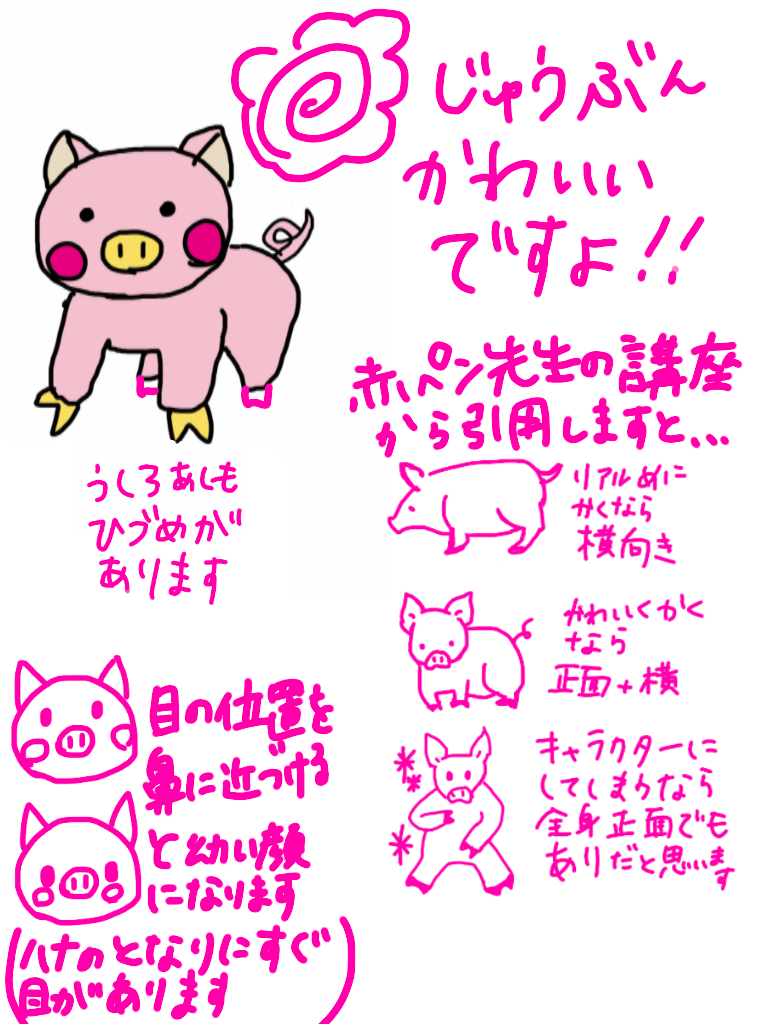 じゅうぶん
かわいい
ですよ!!
赤ペン先生の講座
から引用しますと...
リアルめに
かくなら
横向き
かわいくかく
なら
正面+横
キャラクターに
してしまうなら
全身正面でも
ありだと思います
うしろあしも
ひづめが
あります
目の位置を
鼻に近づける
と幼い顔
になります
(ハナのとなりにすぐ
目があります)